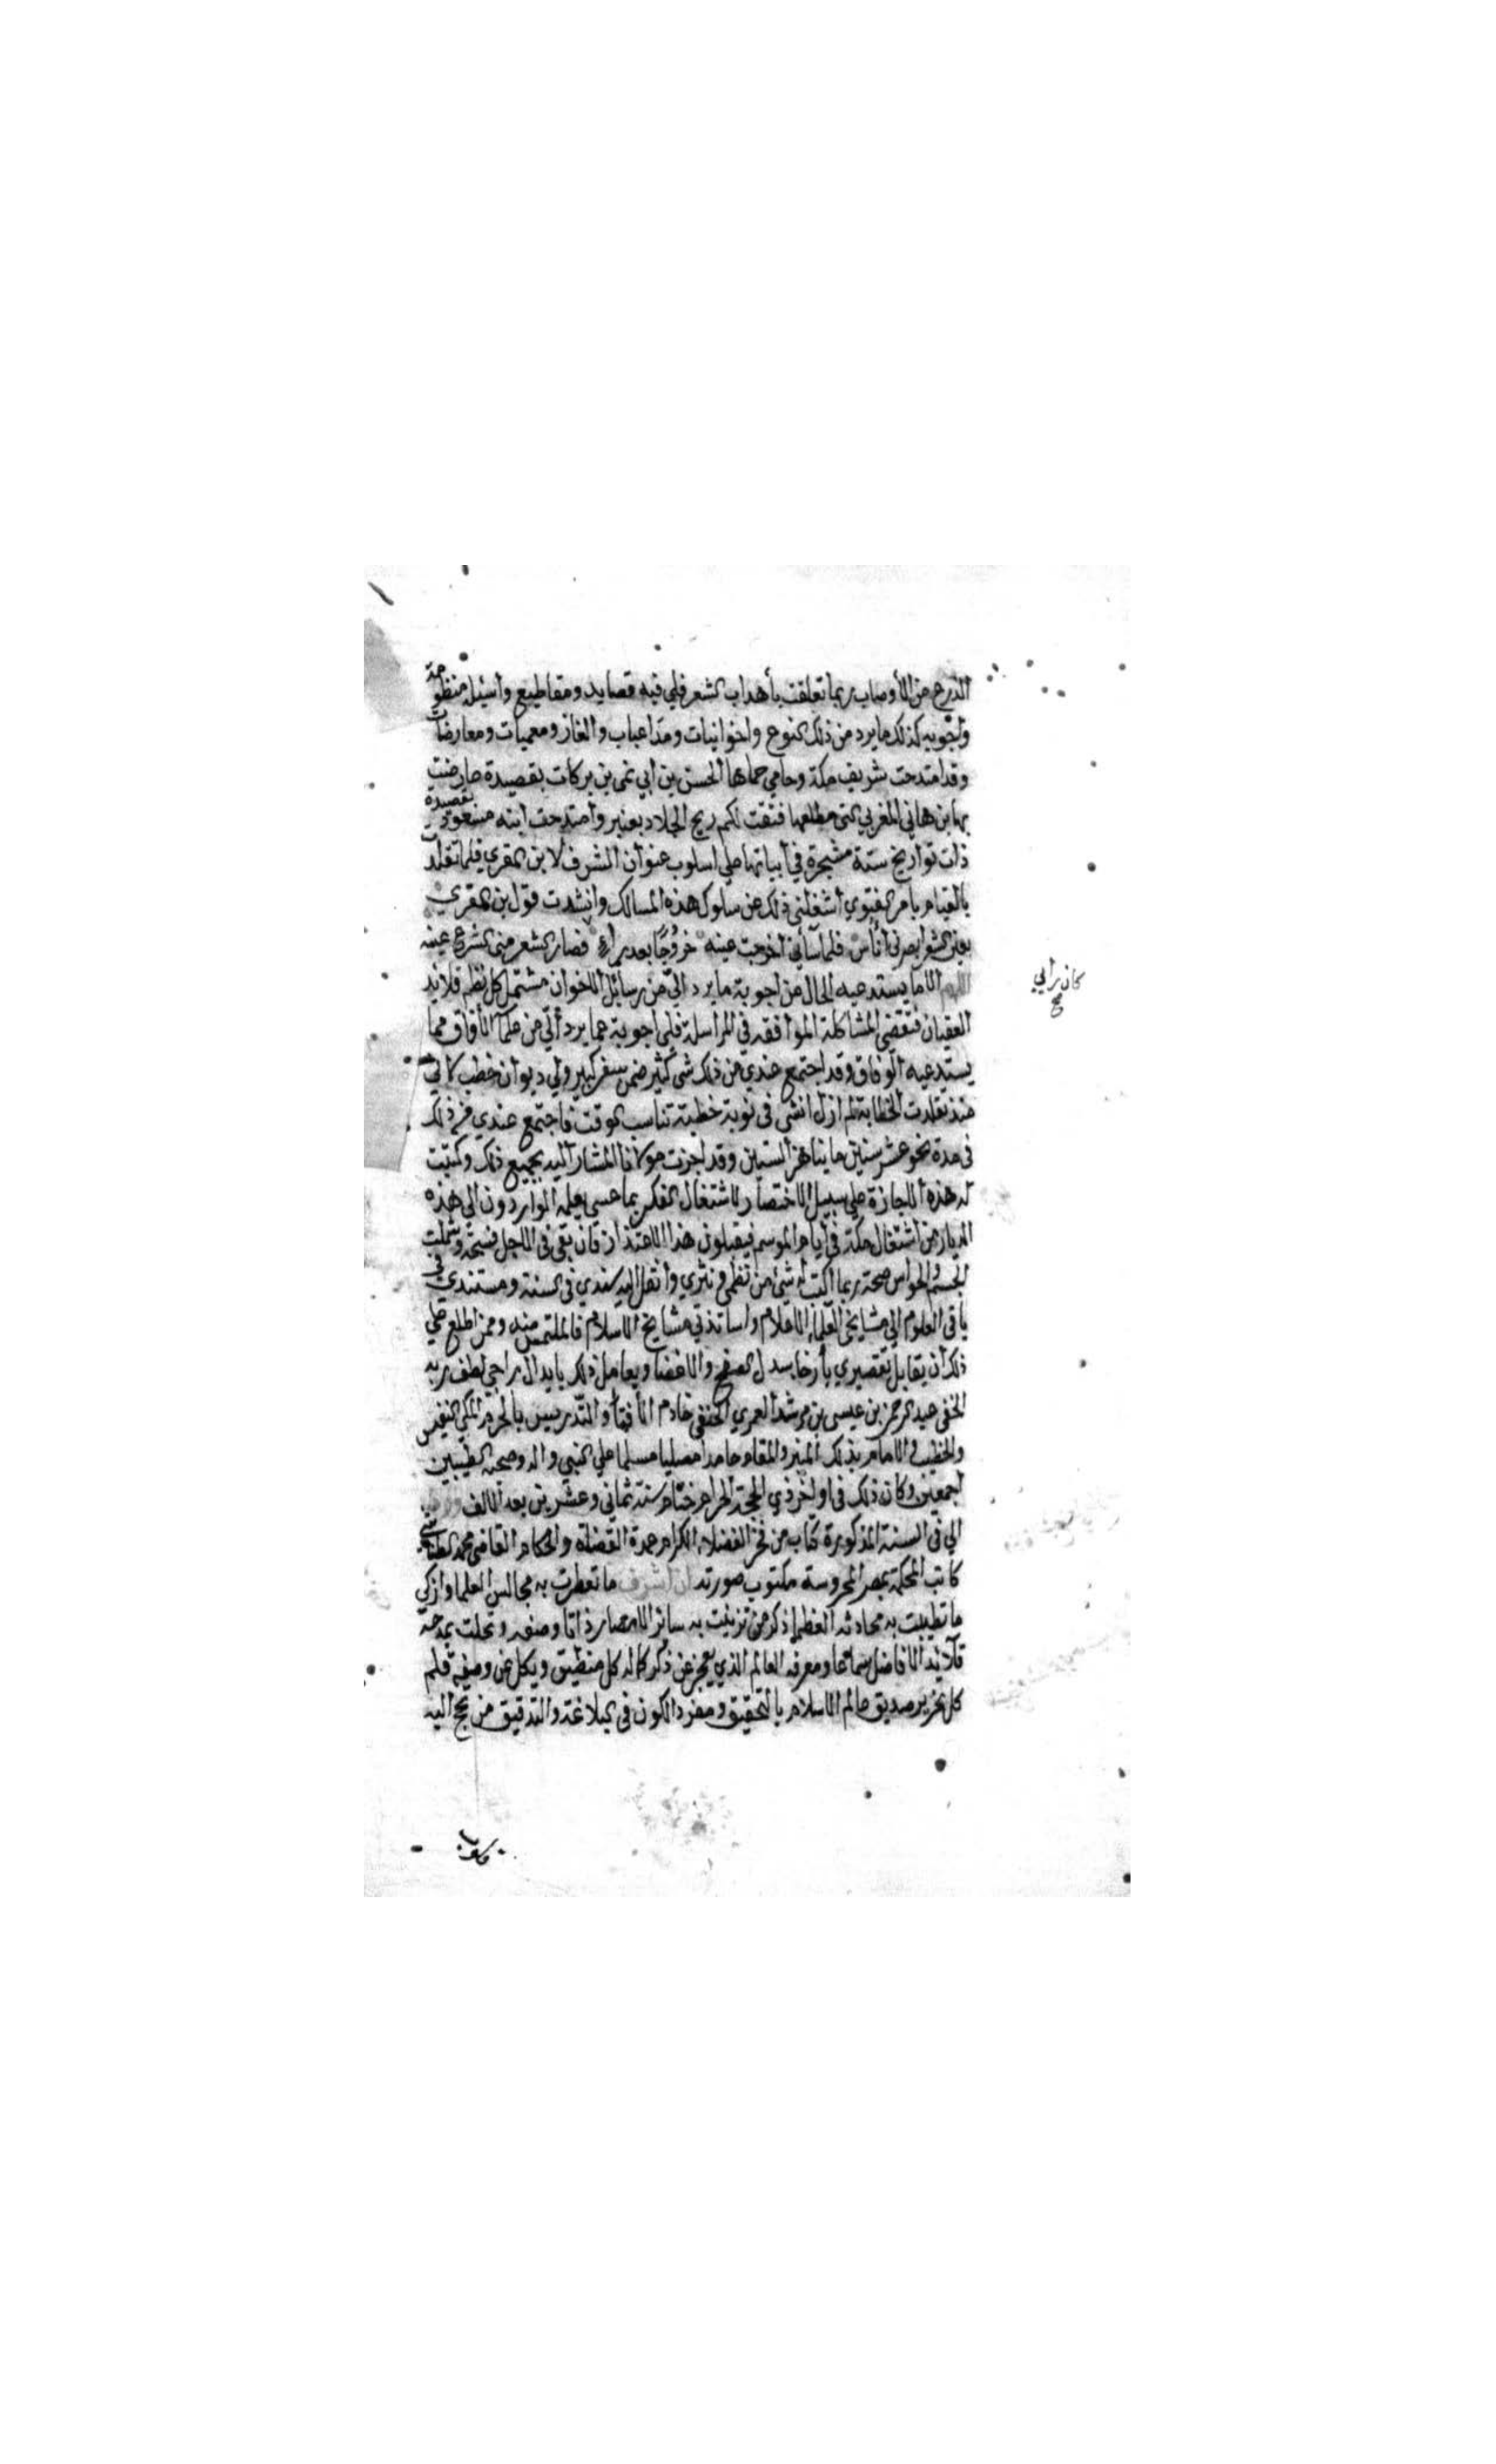 الدرج من الأوصاب ربما تعلقت بأهداب الشعر فلي فيه قصايد ومقاطيع وأسئلة منظومة
وأجوبة كذلك ما يرد من ذلك النوع واخوانيات ومداعبات والغاز ومعميات ومعارضات
وقد امتدحت شريف مكة وحامي حماها الحسن بن أبي نمي بن بركات بقصيدة عارضت
بها ابن هاني المغربي التي مطلعها فتقت لكم ريح الجلاد بعنبر وامتدحت ابنه مسعود بقصيدة
ذات تواريخ ستة مشجرة في أبياتها علي اسلوب عنوان الشرف لابن المقري فلما تقلدت
بالقيام بامر الفتوي أشغلني ذلك عن سلوك هذه المسالك وانشدت قول بن المقري
بعين الشعر ابصرني أناس فلما سآني أخرجت عينه خروجًا بعد راء فصار الشعر مني الشرع عينه
اللهم الا ما يستدعيه الحال من اجوبة ما يرد اليّ من رسائل الاخوان مشتمل كل نظم قلائد
العقيان فتقضي المشاكلة الموافقة في المراسلة فلي أجوبة عما يرد الي من علما الأفاق مما
يستدعيه الوفاق وقد اجتمع عندي من ذلك شي كثير ضمن سفر كبير ولي ديوان خطب كاني
منذ تقلدت الخطابة لم ازل انشي في نوبة خطبة تناسب الوقت فاجتمع عندي من ذلك
في مدة نحو عشر سنين ما يناهز الستين وقد اجزت مولانا المشار اليه بجميع ذلك وكتبت
له هذه الاجازة علي سبيل الاختصار لاشتغال الفكر بما عسي يعلمه الواردون الي هذه
الديار من اشتغال مكة في أيام الموسم فيقبلون هذا الاعتذار فان بقي في الاجل فسحة وشملت
الجسم والحواس صحة ربما اكتب له شيئ من نظمي ونثري وأنقل اليه سندي في السنة ومستندي في
باقي العلوم الي مشايخي العلما الاعلام واساتذتي مشايخ الاسلام فالملتمس منه وممن اطلع علي
ذلك أن يقابل تقصيري بأرخا سدل الصفح والاغضا ويعامل ذلك راجي لطف ربه
الخفي عبد الرحمن بن عيسى بن مرشد العمري الحنفي خادم الأفتا والتدريس بالحرم المكي النفيس
والخطيب والامام بذلك المنبر والمقام حامدا مصليا مسلما علي النبي واله وصحبه الطيبين
اجمعين وكان ذلك في اواخر ذي الحجة الحرام ختام سنة ثماني وعشرين بعد الالف
الي في السنة المذكورة كتاب من فخر الفضلاء الكرام عمدة القضاة والحكام القاضي محمد
كاتب المحكمة بمصر المحروسة مكتوب صورته ان اشرف ما تعطرت به مجالس العلما وازكي
ما تطيبت به محادثه العظما ذكر من تزينت به سائر الامصار ذاتا وصفه وتحلت بمدحته
قلائد الافاضل سماعا ومعرفه العالم الذي يعجز عن ذكر كماله كل منطيق ويكل عن وصفه قلم
كل نحرير صديق عالم الاسلام بالتحقيق ومفرد الكون في البلاغة والتدقيق من حج اليه
كان رأي
صح